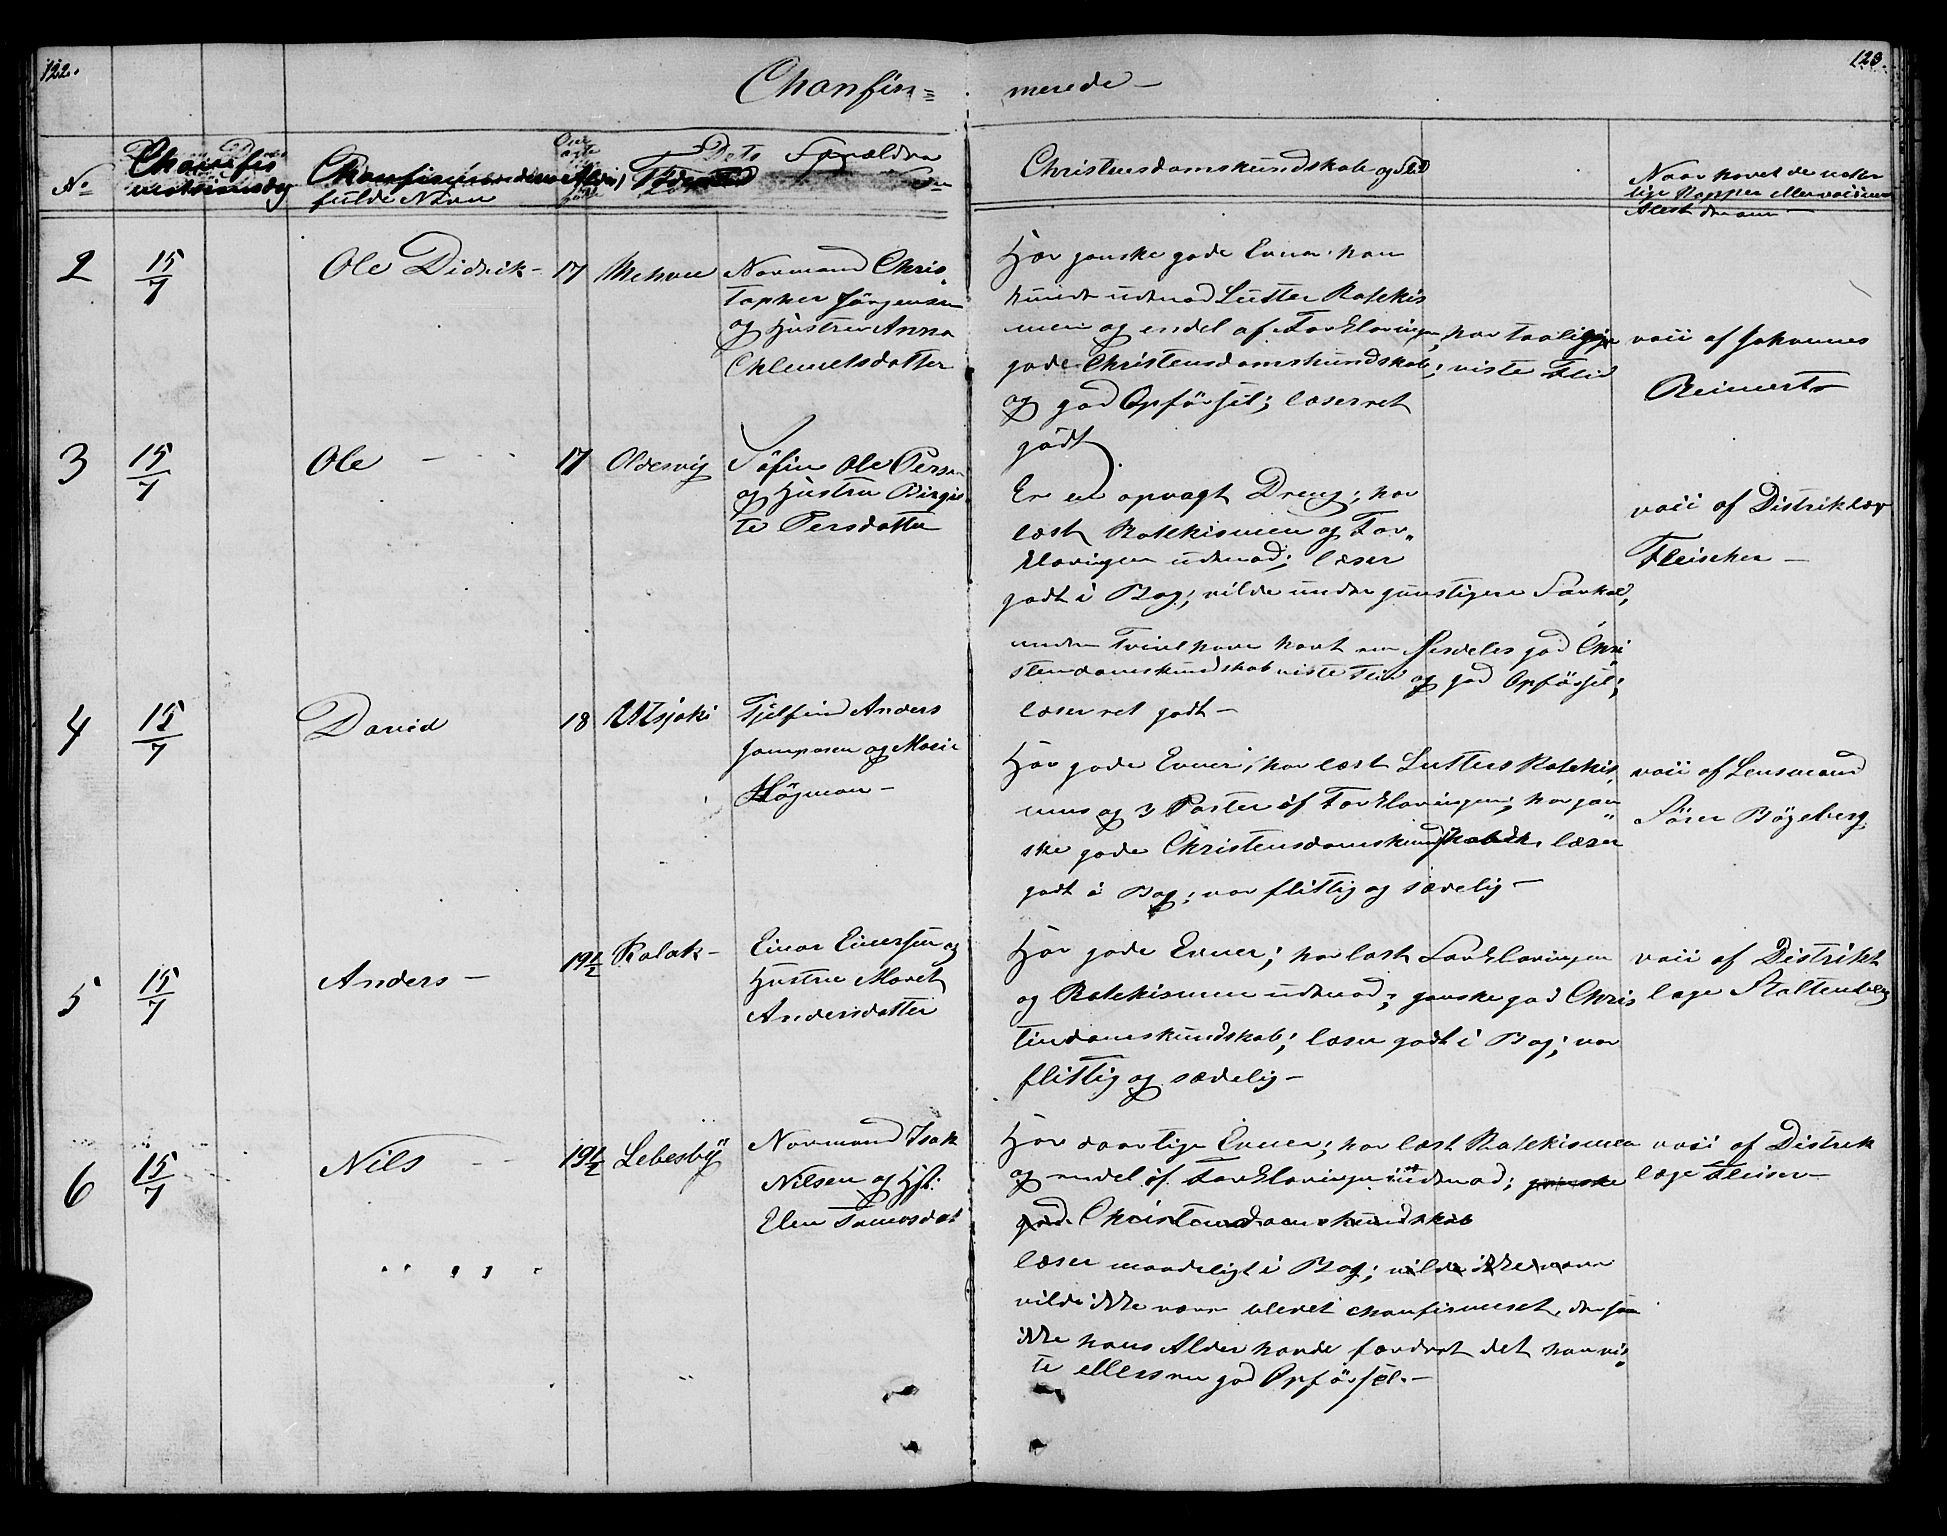 122.
123.
Chonfir= merede —
No
Chonfir
mationsdag
fulde Navn
Dets Forældre
Christensdomskundskab og Flid
Naar havet de natur
lige Kopper eller vaccineret
Attest derom —
2 15/7 Ole Didrik — 17 Mehven
Normand Chris
topher Jörgensen
og Hustru Anna
Chlemetsdatter
Har ganske gode Evner; kan
udenad Lutter Katekis
men og endel af Forklaringen, har taalige
gode Christensdomskundskab; viste Flid
og god Opförsel; læser ret
godt
vaci af Johannes
Reinerts
3 15/7 Ole — 17 Oldervig
Söfin Ole Persen
og Hustru Birgit
te Persdatter
Er en opvagt Dreng; har
læst Katekismen og For„
klaringen udenad; læser
godt i Bog; vilde under gunstigere Forhol„
uden Tvivl have havt en særdeles god Chri
stendomskundskab viste Flid og god Opförsel;
læser ret godt —
vaci af Distriklæg
Fleischer —
4 15/7 David 18 Utsjoki
Fjelfind Anders
og Marie
Högman —
Har gode Evner; har læst Lutters Katekis
mus og 3 Parter af Forklaringen; har gan„
ske gode Christensdomskundskab; læser
godt i Bog; var flittig og sædelig —
vaci af Lensmand
Sören Bögeberg
5 15/7 Anders — 19½ Kalak —
Einar Einersen og
Hustru Maret
Andersdatter
Har gode Evner; har læst Forklaringen
og Katekismen udenad; ganske god Chris
tendomskundskab; læser godt i Bog; var
flittig og sædelig —
vaci af Distrikt
læge Stoltenberg
6 15/7 Nils — 19½ Lebesby
Normand Isak
Nilsen og Hst:
Elen
Har daarlige Evner; har læst Katekismen
og endel af Forklaringen udenad; ganske
god Christensdomskundskab
læser maadeligt i Bog; vilde ikke være
vilde ikke være blevet chonfirmeret, dersom
ikke hans Alder havde fordret det han vis„
te ellers en god Opförsel. —
vaci af Distrik
læge Fleiser —